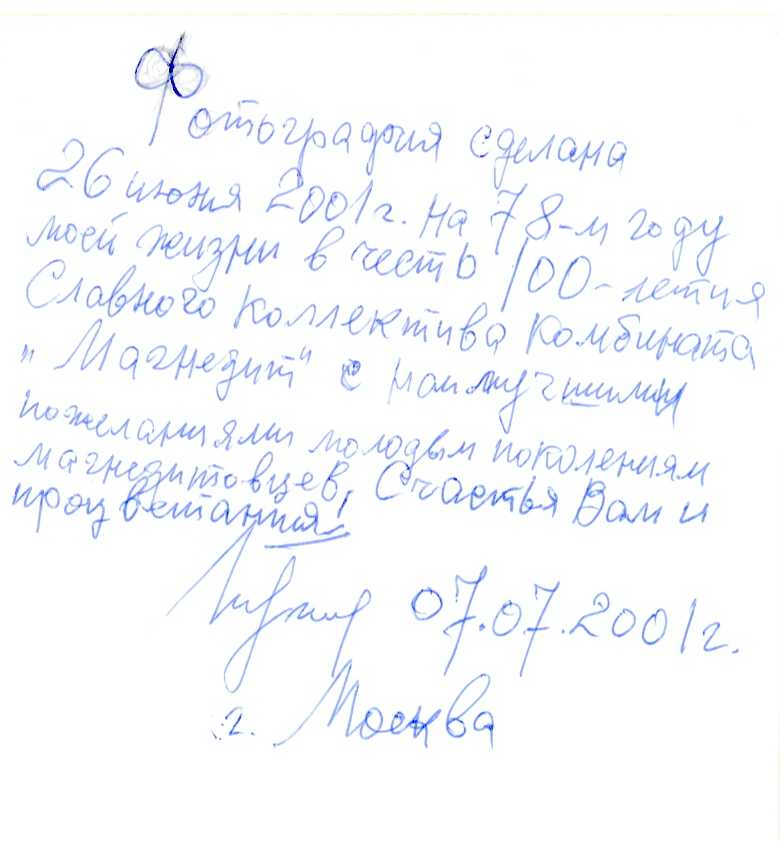 Фотография сделана
26 июня 2001 г. на 78-м году
моей жизни в честь 100-летия
Славного Коллектива Комбината
„Магнезит" с наилучшими
пожеланиями молодым поколениям
магнезитовцев, Счастья Вам и
процветания!
07.07.2001 г.
г. Москва